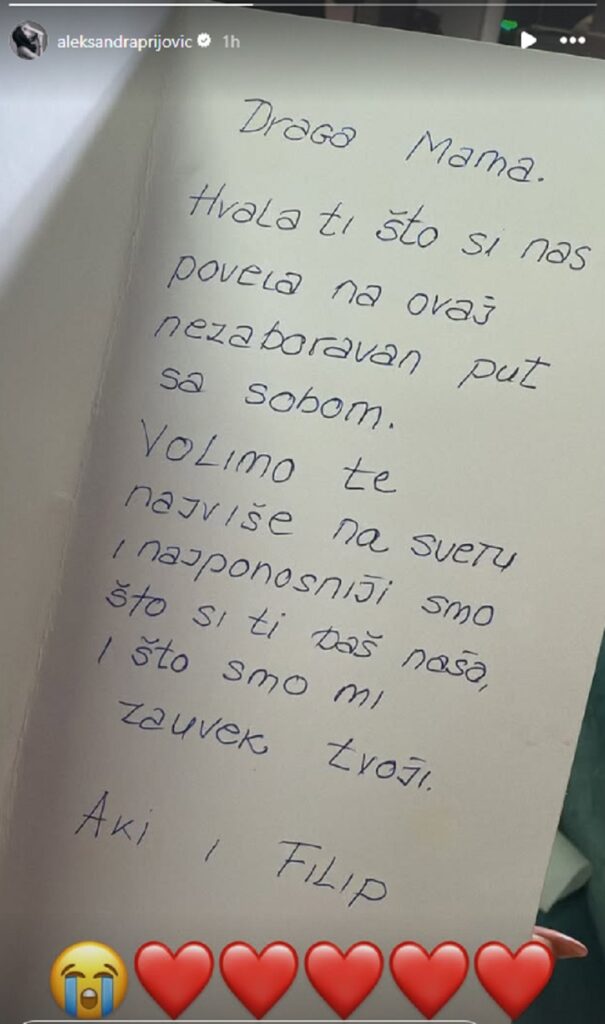 aleksandraprijovic 1h
Draga Mama.
Hvala ti što si nas
povela na ovaj
nezaboravan put
sa sobom.
Volimo te
najviše na svetu
i najponosniji smo
što si ti baš naša,
i što smo mi
zauvek tvoji.
Aki i Filip